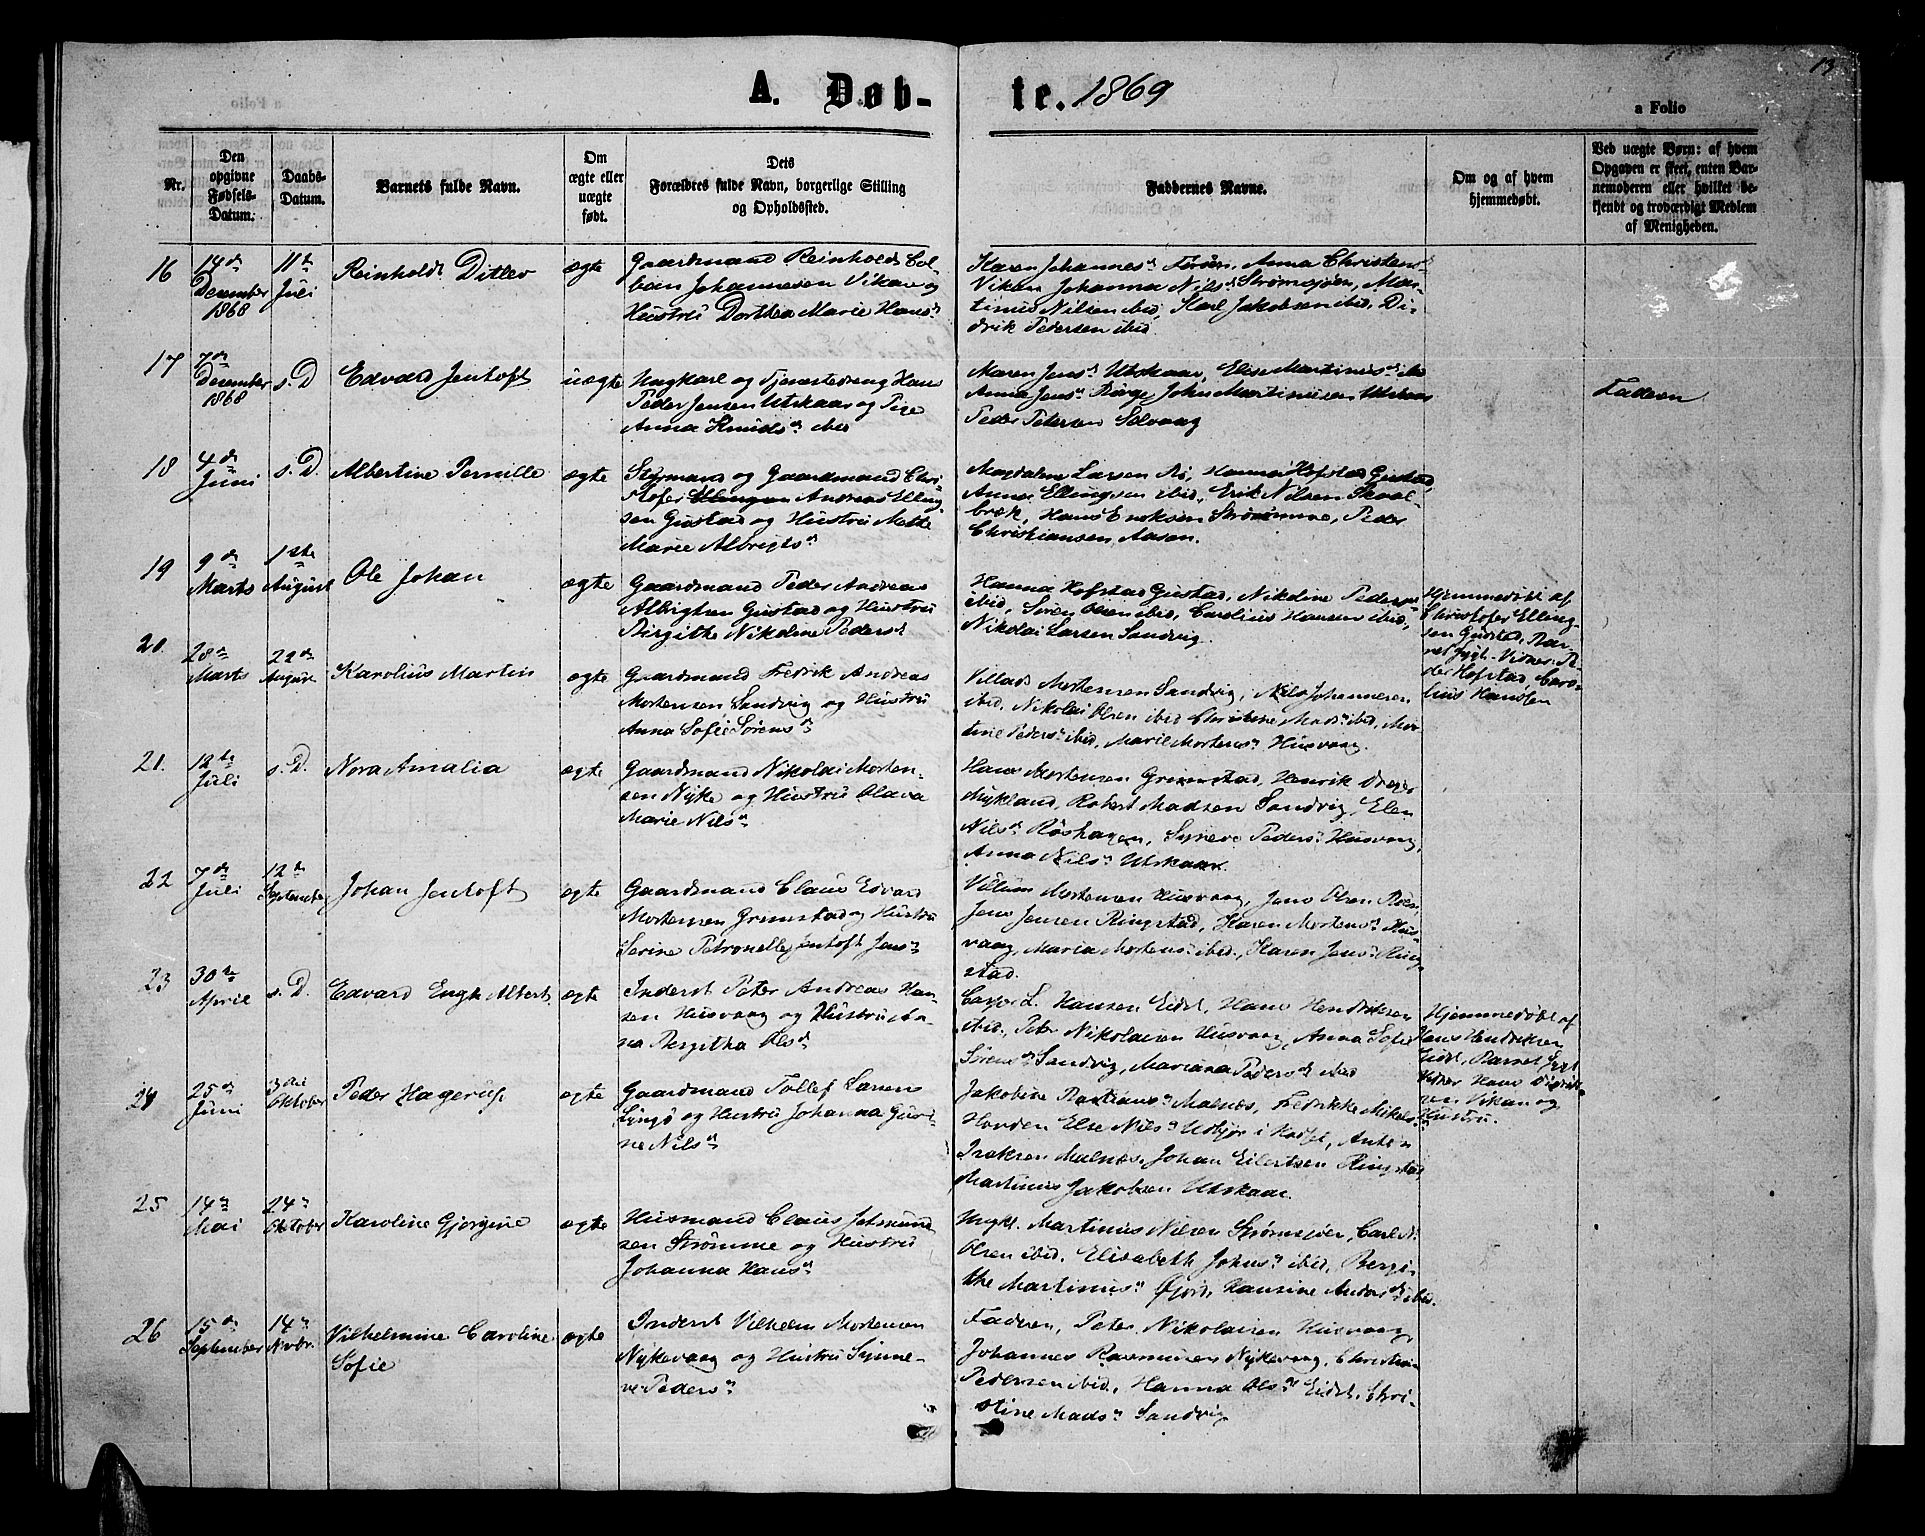 13
A. Døb-
te. 1869
a Folio
Nr.
Den opgivne Fødsels-Datum.
Daabs-Datum.
Barnets fulde Navn.
Om ægte eller uægte født.
Dets Forældres fulde Navn, borgerlige Stilling og Opholdssted.
Faddernes Navne.
Om og af hvem hjemmedøbt.
Ved uægte Børn: af hvem Opgaven er skeet, enten Barnemoderen eller hvilket bekjendt og troværdigt Medlem af Menigheden.
16
14de December 1868
11te Juli
Reinholdt Ditlev
ægte
Gaardmand Reinholdt Col-
ban Johannesen Vikan og
Hustru Dorthea Marie Hans dr
Karen Johannes dr, Anna Christens dr
Vikan Johanna Nils dr Strømsjøen, Mar-
tinus Nilsen ibid, Karl Jakobsen ibid, Di-
drik Pedersen ibid
17
7de December 1868
s. D
Edvard Jentoft
uægte
Ungkarl og Tjenestedreng Hans
Peder Jensen Utskaar og Pige
Anna Knuds dr ibid
Maren Jens dr Utskaar, Else Martinus dr ibid
Anna Jens dr, John Martinusen Utskaar
Peder Petersen Solvaag
Faderen
18
4de Juni
s. D.
Albertine Pernille
ægte
Styrmand og Gaardmand Chri-
stofer Andreas Elling-
sen Gustad og Hustru Mette
Marie Albrigts dr
Magdalena Larsen, Hanna Hofstad Gustad,
Anna Ellingsen ibid, Erik Nilsen Skaal-
bræk, Hans Eriksen Strømme, Peder
Christiansen Aasen.
19
9de Marts
1ste August
Ole Johan
ægte
Gaardmand Peder Andreas
Albrigtsen Gustad og Hustru
Birgitte Nikoline Peders dr
Hanna Hofstad Gustad, Nikoline Pedersen
ibid, Søren Olsen ibid, Carolius Hansen ibid,
Nikolai Larsen Sandvig.
Hjemmedøbt af
Christofer Elling-
sen Gustad, Bar-
net sygt. Vidner: Pe-
der Hofstad, Caro-
lius Hansen
20.
28de Marts
22de August
Karolius Martin
ægte
Gaardmand Fredrik Andreas
Mortensen Sandvig og Hustru
Anna Sofie Sørens dr
Villads Mortensen Sandvig, Nils Johannesen
ibid, Nikolai Olsen ibid Christine Mads dr ibid, Mar-
tine Peders dr ibid, Marie Mortens dr Husvaag.
21.
12te Juli
s. D.
Nora Amalia
ægte
Gaardmand Nikolai Morten-
sen Nyke og Hustru Olava
Marie Nils dr
Hans Mortensen Grimstad, Henrik Dreyer
Mykland, Robert Madsen Sandvig, Elen
Nils dr Røshagen, Synneve Peders dr Husvaag,
Anna Nils dr Utskaar.
22
7de Juli
12te September
Johan Jentoft
ægte
Gaardmand Claus Edvard
Mortensen Grimstad og Hustru
Serine Petronelle Jentoft Jens dr
Villum Mortensen Husvaag, Jens Olsen,
Jens Jensen Ringstad, Karen Mortens dr Hus-
vaag, Maria Mortens dr ibid., Karen Jens dr Ring-
stad.
23
30te April
s. D.
Edvard Engh Albert
ægte
Inderst Peter Andreas Han-
sen Husvaag og Hustru An-
na Bergitha Ols dr
Casper L. Hansen Eidet, Hans Hendriksen
ibid, Peter Nikolaisen Husvaag, Anna Sofie
Sørens dr Sandvig, Mariana Peders dr ibid
Hjemmedøbt af
Hans Hendriksen
Eidet, Barnet sygt
Vidner Hans Didrik-
sen Vikan og
Hustru.
24
25de Juni
3die Oktober
Peder Hagerup
ægte
Gaardmand Tollef Larsen
Lyngø og Hustru Johanna Guri-
ne Nils dr
Jakobine Bastians dr Malnæs, Fredrikke Mikels dr
Hovden Else Nils dr, Anton
Isaksen Malnæs, Johan Eilertsen Ringstad,
Martinus Jakobsen Utskaar.
25
14de Mai
24de Oktober
Karoline Gjørgine
ægte
Husmand Claus Jetmund-
sen Strømme og Hustru
Johanna Hans dr
Ungk. Martinus Nilsen Strømsjøen, Carl N.
Olsen ibid. Elisabeth Johns dr ibid, Bergi-
the Martinus dr, Hansine Anders dr ibid.
26
15de September
14de Novbr.
Vilhelmine Caroline
Sofie
ægte
Inderst Vilhelm Mortensen
Nykevaag og Hustru Synne-
ve Peders dr
Faderen, Peter Nikolaisen Husvaag,
Johannes Rasmussen Nykevaag, Christian
Pedersen ibid, Hanna Ols dr Eidet, Chri-
stine Mads dr Sandvig